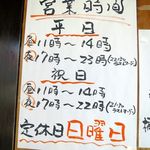 営業時間
平日
昼11時〜14時
夜17時〜23時
祝日
昼11時〜14時
夜17時〜22時
定休日 日曜日